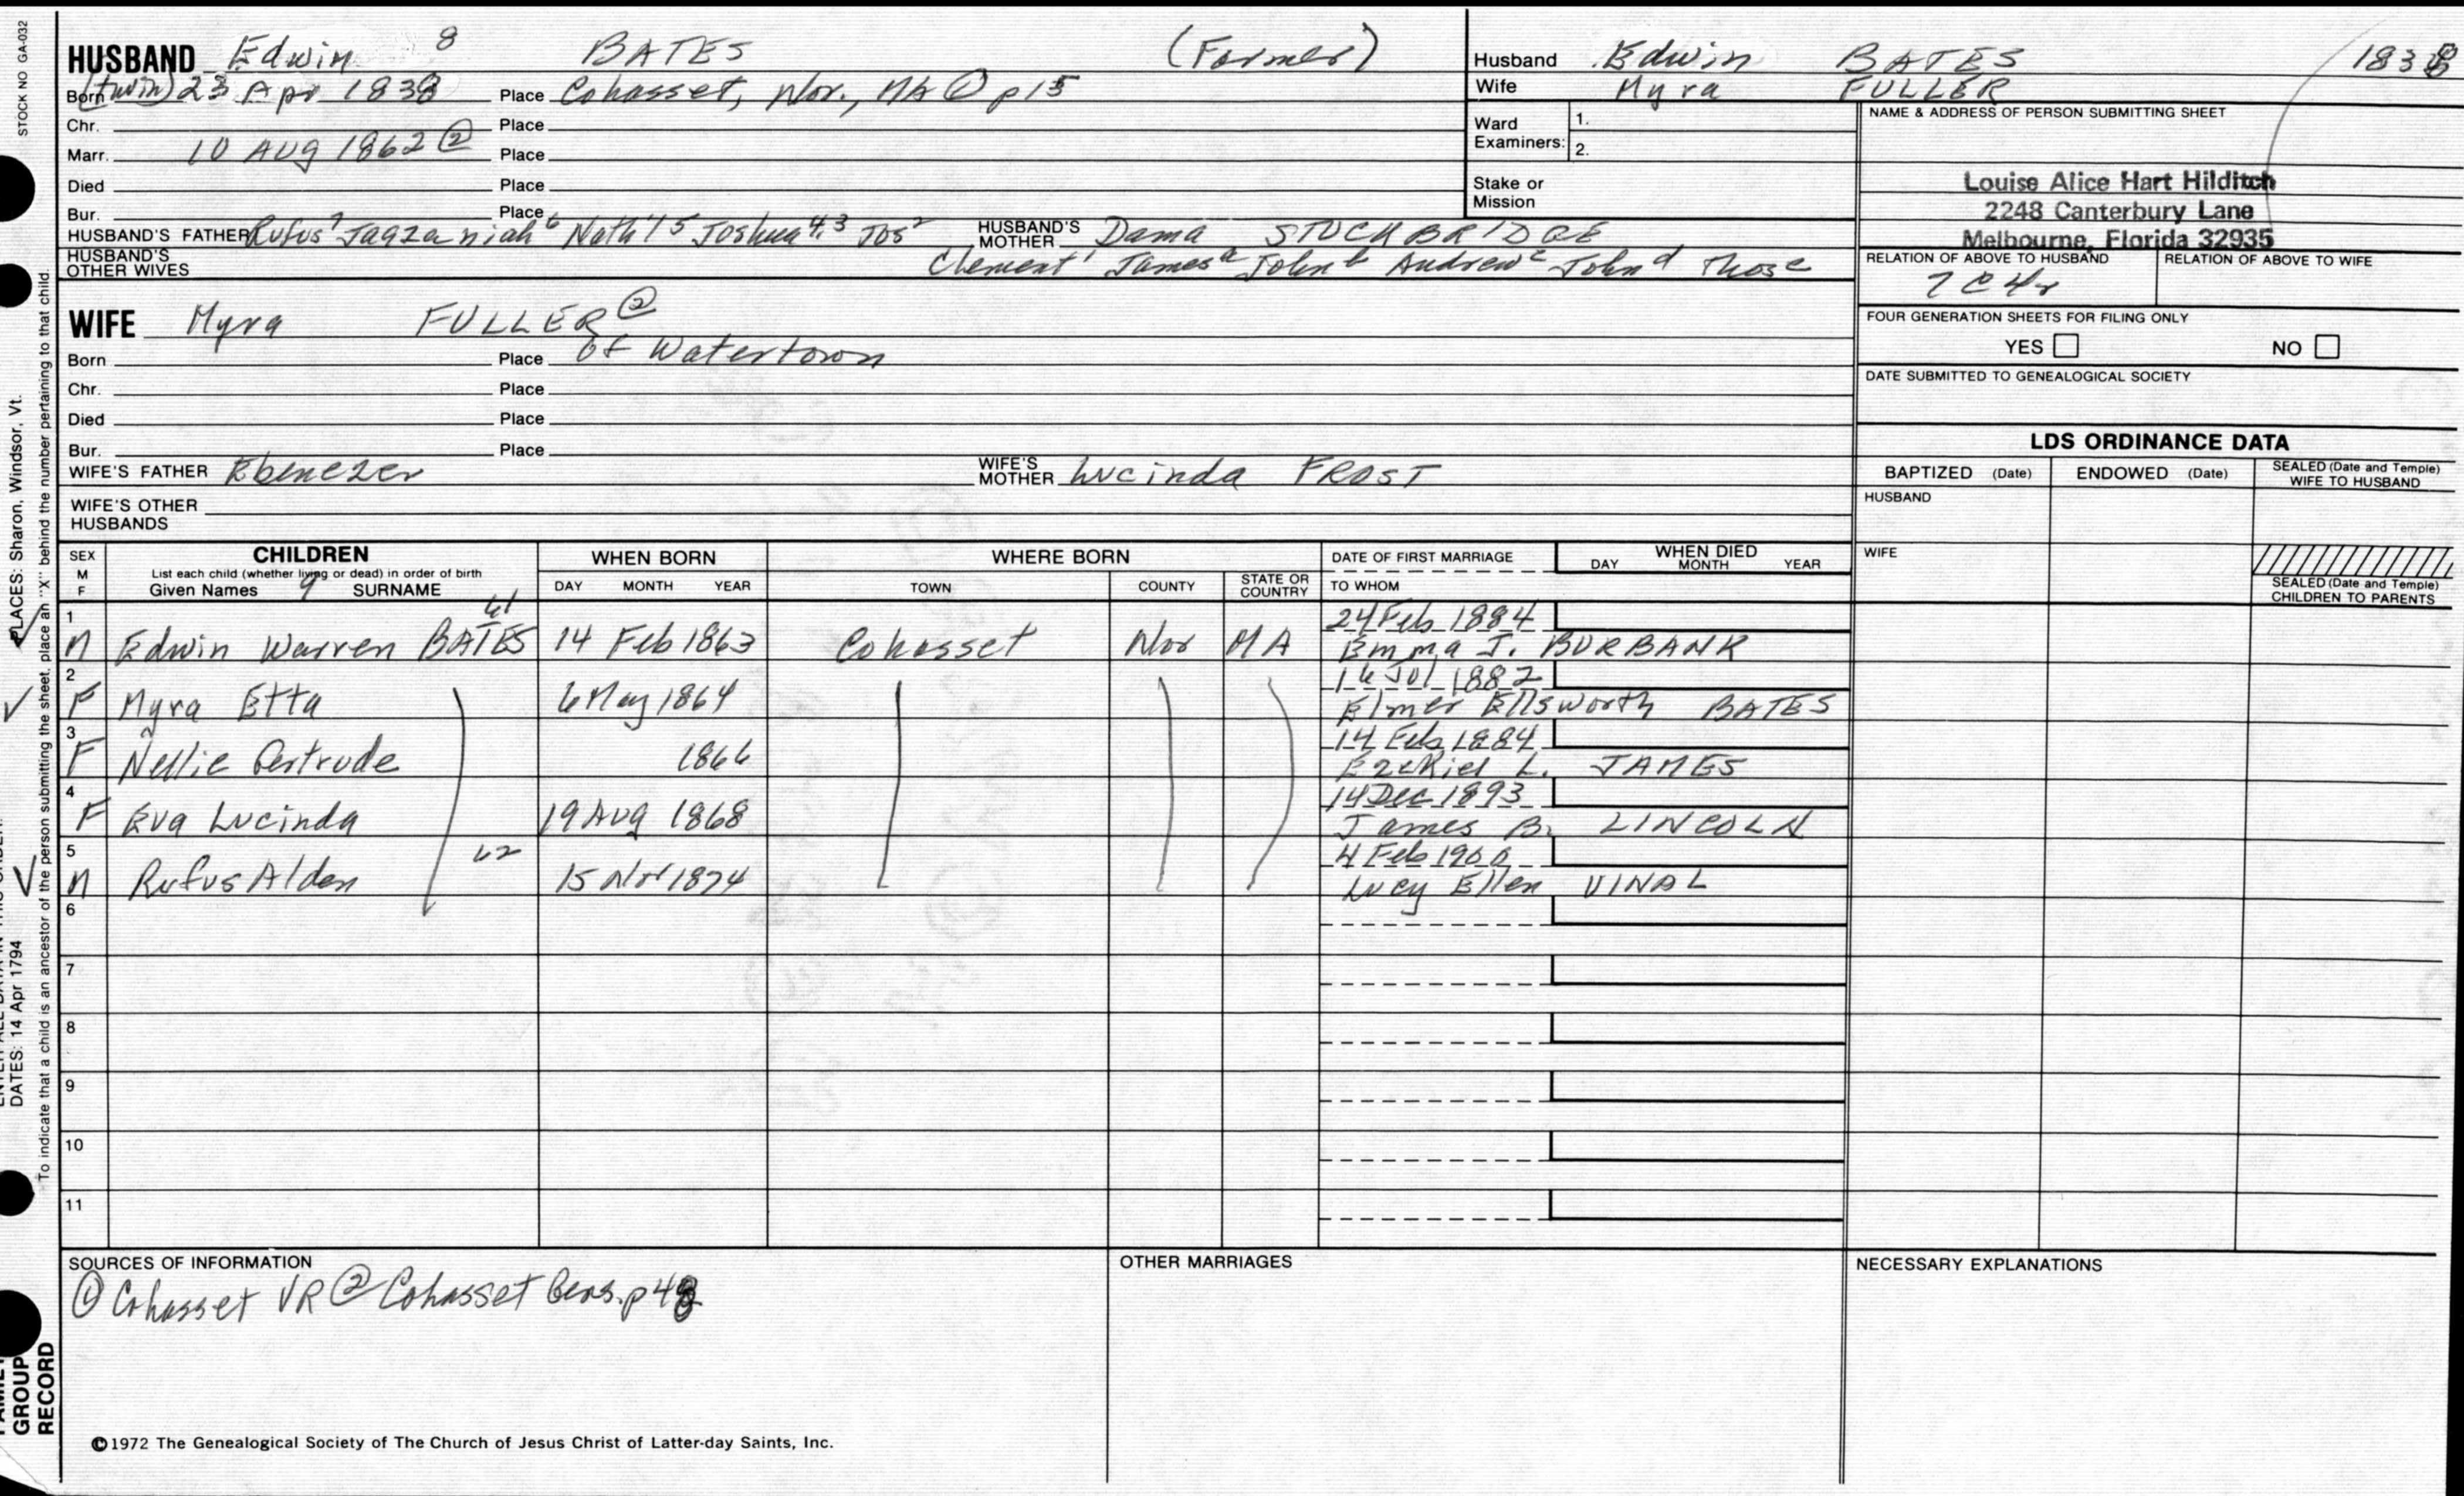 STOCK NO GA-032
HUSBAND Edwin 8 BATES (Farmer)
Born (twin) 23 Apr 1838 Place Cohasset, Nor., MA ① p15
Chr. Place
Marr. 10 AUG 1862 ② Place
Died Place
Bur. Place
HUSBAND'S FATHER Rufus 7 Jaazaniah 6 Nath'l 5 Joshua 4,3 Jos 2 HUSBAND'S MOTHER Dama STOCKBRIDGE
HUSBAND'S OTHER WIVES Clement 1 James a John b Andrew c John d Thos e
Husband Edwin BATES 1838
Wife Myra FULLER
Ward Examiners: 1.
2.
Stake or Mission
NAME & ADDRESS OF PERSON SUBMITTING SHEET
Louise Alice Hart Hilditch
2248 Canterbury Lane
Melbourne, Florida 32935
RELATION OF ABOVE TO HUSBAND RELATION OF ABOVE TO WIFE
7C4r
FOUR GENERATION SHEETS FOR FILING ONLY
YES NO
DATE SUBMITTED TO GENEALOGICAL SOCIETY
WIFE Myra FULLER ②
Born Place of Watertown
Chr. Place
Died Place
Bur. Place
WIFE'S FATHER Ebenezer WIFE'S MOTHER Lucinda FROST
WIFE'S OTHER HUSBANDS
LDS ORDINANCE DATA
BAPTIZED (Date) ENDOWED (Date) SEALED (Date and Temple) WIFE TO HUSBAND
HUSBAND
WIFE
SEALED (Date and Temple) CHILDREN TO PARENTS
SEX M F CHILDREN WHEN BORN WHERE BORN DATE OF FIRST MARRIAGE WHEN DIED
List each child (whether living or dead) in order of birth
Given Names 9 SURNAME DAY MONTH YEAR TOWN COUNTY STATE OR COUNTRY TO WHOM DAY MONTH YEAR
1 61 24 Feb 1884
M Edwin Warren BATES 14 Feb 1863 Cohasset Nor MA Emma J. BURBANK
2 16 Jul 1882
F Myra Etta 6 May 1864 Elmer Ellsworth BATES
3 14 Feb 1884
F Nellie Gertrude 1866 Ezekiel L. JAMES
4 14 Dec 1893
F Eva Lucinda 19 AUG 1868 James B. LINCOLN
5 62 4 Feb 1900
M Rufus Alden 15 Nov 1874 Lucy Ellen VINAL
6
7
8
9
10
11
SOURCES OF INFORMATION OTHER MARRIAGES NECESSARY EXPLANATIONS
① Cohasset VR ② Cohasset Gens. p48
©1972 The Genealogical Society of The Church of Jesus Christ of Latter-day Saints, Inc.
PLACES: Sharon, Windsor, Vt.
DATES: 14 Apr 1794
To indicate that a child is an ancestor of the person submitting the sheet, place an "X" behind the number pertaining to that child.
GROUP
RECORD